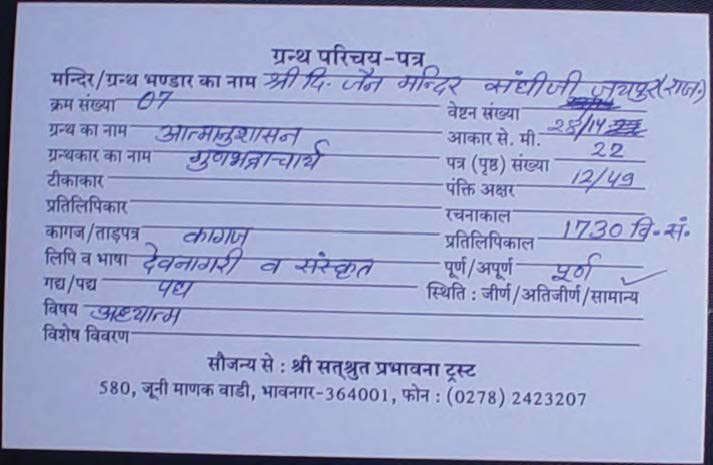 ग्रन्थ परिचय-पत्र
मन्दिर/ग्रन्थ भण्डार का नाम श्री दि. जैन मन्दिर संधीजी जयपुर (राज.)
क्रम संख्या 07 वेष्टन संख्या
ग्रन्थ का नाम आत्मानुशासन आकार से. मी. 28/14
ग्रन्थकार का नाम गुणभद्राचार्य पत्र (पृष्ठ) संख्या 22
टीकाकार पंक्ति अक्षर 12/49
प्रतिलिपिकार रचनाकाल
कागज/ताड़पत्र कागज प्रतिलिपिकाल 1730 वि. सं.
लिपि व भाषा देवनागरी व संस्कृत पूर्ण/अपूर्ण पूर्ण
गद्य/पद्य पद्य स्थिति : जीर्ण/अतिजीर्ण/सामान्य ✓
विषय अध्यात्म
विशेष विवरण
सौजन्य से : श्री सत्श्रुत प्रभावना ट्रस्ट
580, जूनी माणक वाडी, भावनगर-364001, फोन : (0278) 2423207